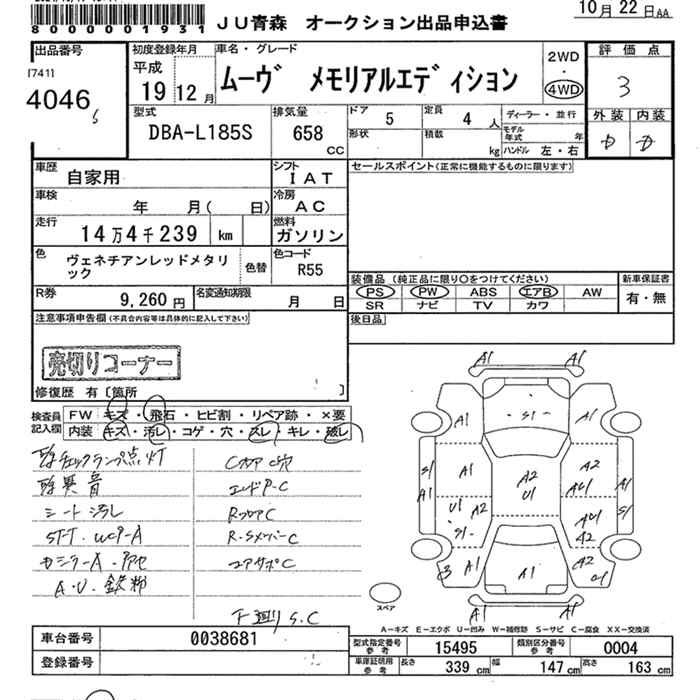 JU青森 オークション出品申込書
10月 22日AA
8000001931
出品番号
[741]
4046
初度登録年月
平成
19 12月
車名・グレード
ムーヴ メモリアルエディション
2WD
・
4WD
評価点
3
型式
DBA-L185S
排気量
658
cc
ドア 5
定員 4人
形状
積載 kg
ディーラー・並行
モデル年式 年
ハンドル 左・右
外装 内装
車歴
自家用
シフト
IAT
セールスポイント(正常に機能するものに限ります)
車検
年 月( 日)
冷房
AC
走行
14万4千239 km
燃料
ガソリン
色
ヴェネチアンレッドメタリック
色替
色コード
R55
R券
9,260円
名変通知期限
月 日
装備品 (純正品に限り○をつけてください)
PS PW ABS エアB AW
SR ナビ TV カワ
新車保証書
有・無
後日品
注意事項申告欄(不具合内容等は具体的に記入して下さい)
売切りコーナー
修復歴 有〔箇所 〕
検査員記入欄
FW キズ・飛石・ヒビ割・リペア跡・×要
内装 キズ・汚レ・コゲ・穴・スレ・キレ・破レ
シート汚レ
A.U.鉄粉
下廻りS.C
A1
A1
A1
S1
A1
S1
A1
A1
A2
A2
U1
U1
A2
S1
A1
A2
A1
A1
A1
スペア
A－キズ E－エクボ U－凹み W－補修跡 S－サビ C－腐食 XX－交換済
車台番号 0038681
登録番号
型式指定番号参考 15495
類別区分番号参考 0004
車庫証明用参考
長さ 339cm
幅 147cm
高さ 163cm